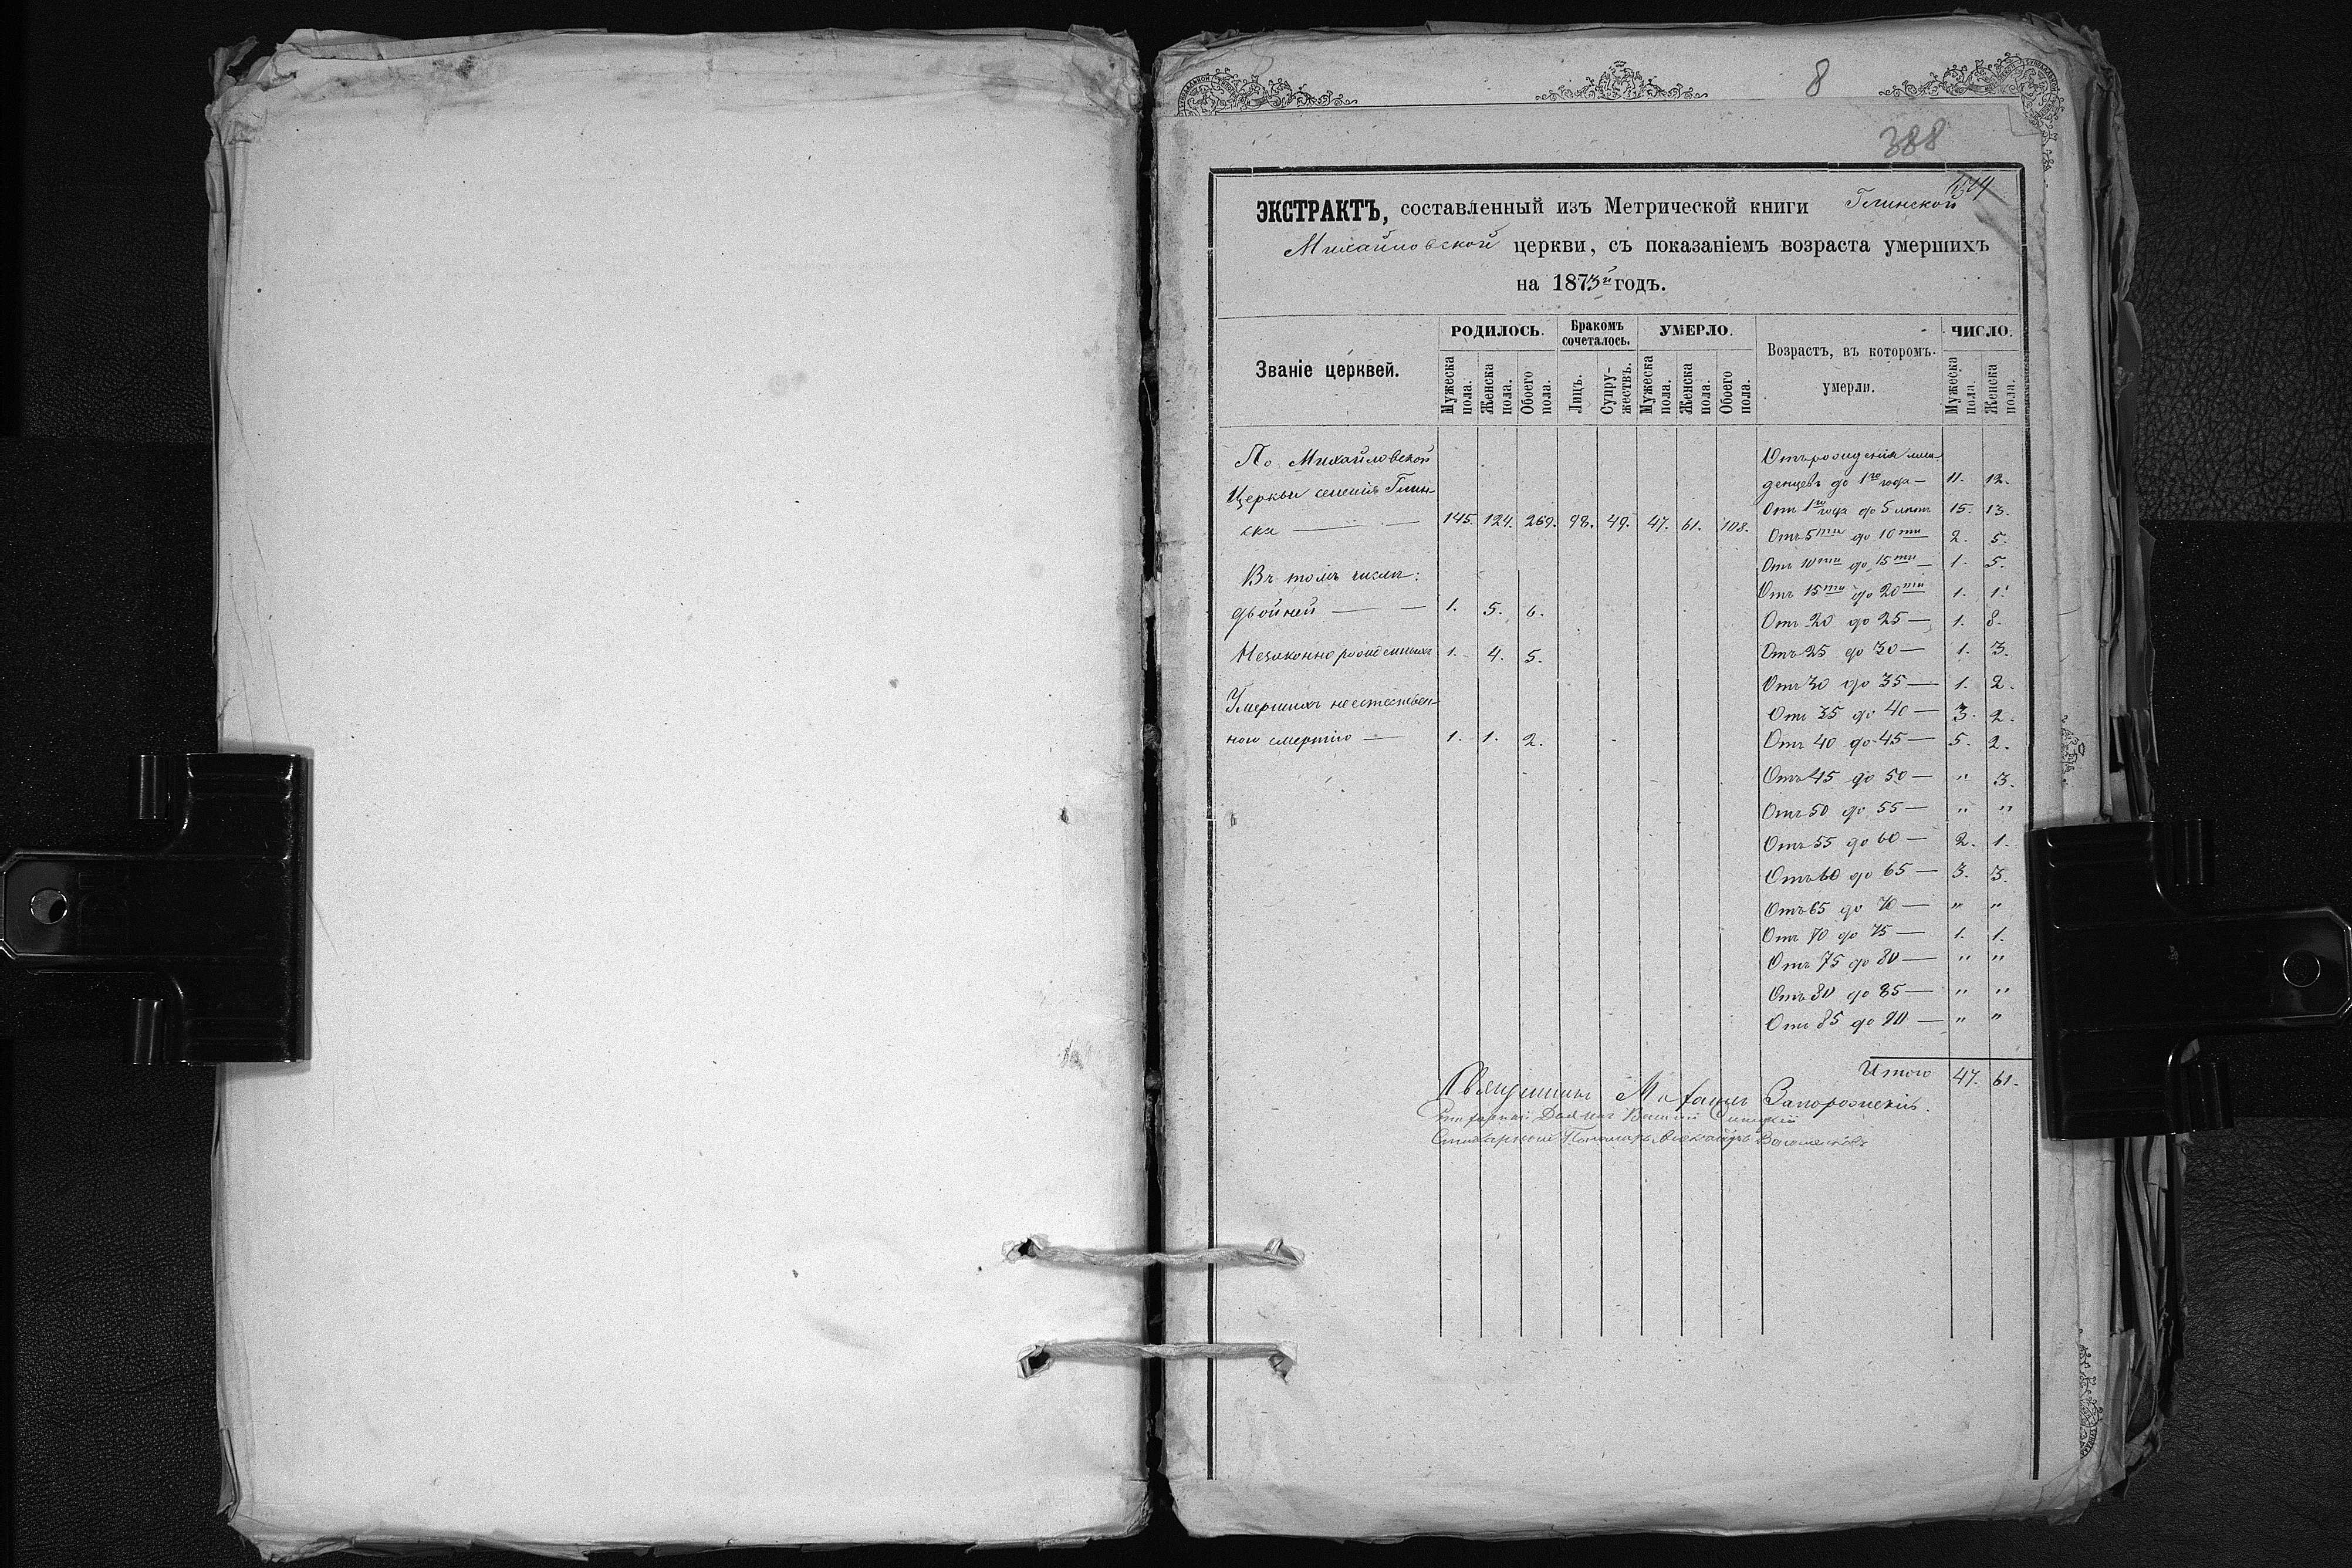 8
388
ЭКСТРАКТЪ, составленный изъ Метрической книги Глинской
Михайловской церкви, съ показаніемъ возраста умершихъ
на 1873й годъ.
Званіе церквей.
РОДИЛОСЬ.
Мужеска пола.
Женска пола.
Обоего пола.
Бракомъ сочеталось.
Лицъ.
Супружествъ.
УМЕРЛО.
Мужеска пола.
Женска пола.
Обоего пола.
Возрастъ, въ которомъ умерли.
ЧИСЛО.
Мужеска пола.
Женска пола.
По Михайловской
Церкви селенія Глин-
ска — 145. 124. 269. 98. 49. 47. 61. 108.
Въ томъ числѣ:
двойней — — 1. 5. 6.
Незаконнорожденныхъ 1. 4. 5.
Умершихъ неестествен-
ною смертію — 1. 1. 2.
Отъ рожденія мла-
денцевъ до 1го года — 11. 12.
Отъ 1го года до 5 лѣтъ 15. 13.
Отъ 5ти до 10ти 2. 5.
Отъ 10ти до 15ти — 1. 5.
Отъ 15ти до 20ти 1. 1.
Отъ 20 до 25 — 1. 8.
Отъ 25 до 30 — 1. 3.
Отъ 30 до 35 — 1. 2.
Отъ 35 до 40 — 3. 2.
Отъ 40 до 45 — 5. 2.
Отъ 45 до 50 — " 3.
Отъ 50 до 55 — " "
Отъ 55 до 60 — 2. 1.
Отъ 60 до 65 — 3. 3.
Отъ 65 до 70 — " "
Отъ 70 до 75 — 1. 1.
Отъ 75 до 80 — " "
Отъ 80 до 85 — " "
Отъ 85 до 90 — " "
Итого 47. 61.
Священникъ Михаилъ Запорожскій.
Стихарный Дьячекъ Василій
Стихарный Пономарь Александръ